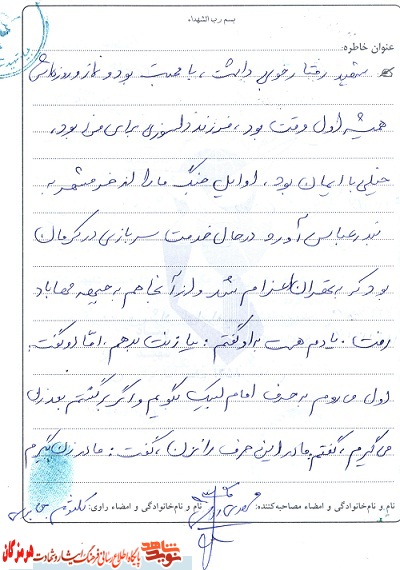 بسم رب الشهداء
عنوان خاطره:
شهید رفتار خوبی داشت، با محبت بود و نماز و روزه‌اش
همیشه اول وقت بود، فرزند دلسوزی برای من بود،
خیلی با ایمان بود، اوایل جنگ ما را از خرمشهر به
بندرعباس آورد در حال خدمت سربازی در کرمان
بود که به تهران اعزام شد و از آنجا هم به جبهه مهاباد
رفت. یادم هست به او گفتم: بیا زنت بدهم، اما او گفت:
اول می‌روم به حرف امام لبیک بگویم و اگر برگشتم بعد زن
می‌گیرم، گفتم مادر این حرف را نزن، گفت: مادر زن بگیرم
نام و نام خانوادگی و امضاء مصاحبه‌کننده:
نام و نام خانوادگی و امضاء راوی:
نوید شاهد
پایگاه اطلاع رسانی فرهنگ ایثار و شهادت هرمزگان